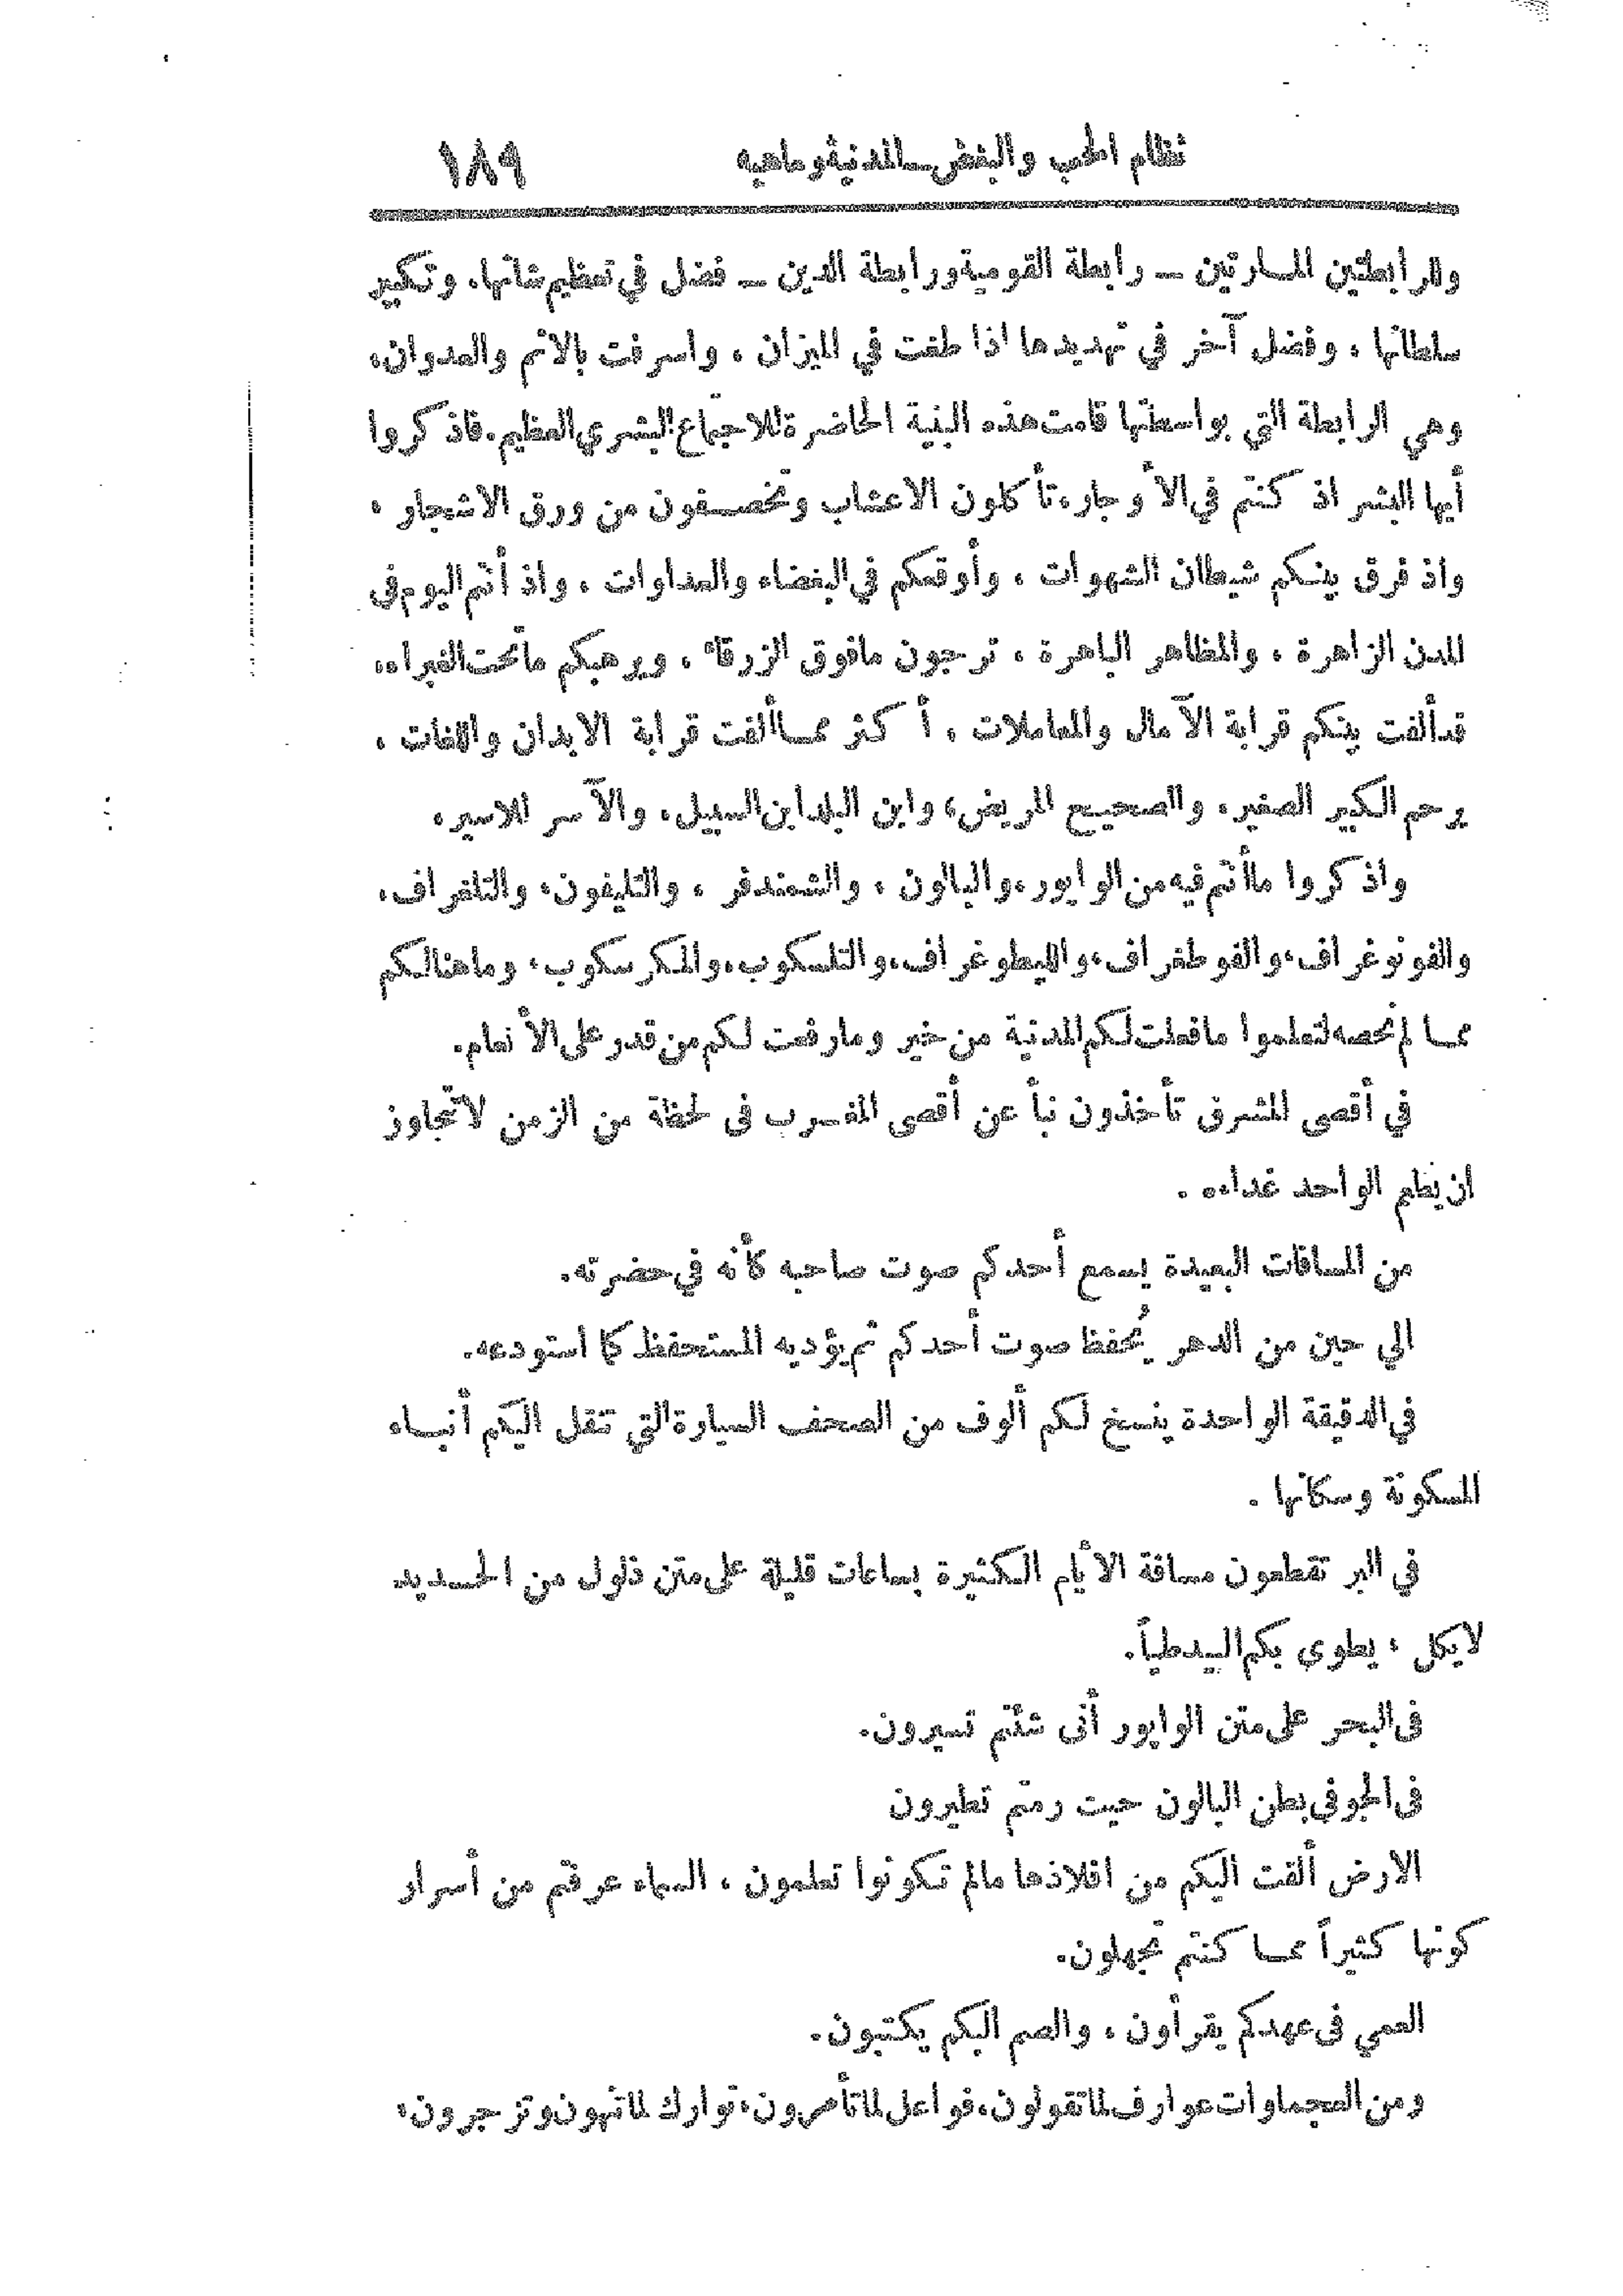 نظام الحب والبغض ــ المدنية وما هيه ١٨٩
وللرابطتين المارتين ــ رابطة القومية ورابطة الدين ــ فضل في تعظيم شانها، وتكبير
سلطانها ، وفضل آخر في تهديدها اذا طغت في الميزان ، واسرفت بالاثم والعدوان،
وهي الرابطة التي بواسطتها قامت هذه البنية الحاضرة للاجتماع البشري العظيم. فاذكروا
أيها البشر اذ كنتم في الأوجار، تأكلون الاعشاب وتخصفون من ورق الاشجار ،
واذ فرق بينكم شيطان الشهوات ، وأوقعكم في البغضاء والعداوات ، واذ أنتم اليوم في
المدن الزاهرة ، والمظاهر الباهرة ، ترجون مافوق الزرقاء ، ويرهبكم ماتحت الغبراء،
قد ألفت بينكم قرابة الآمال والمعاملات ، أكثر مما ألفت قرابة الابدان واللغات ،
يرحم الكبير الصغير، والصحيح المريض، وابن البلد ابن السبيل، والآسر للاسير،
واذكروا ما أنتم فيه من الوابور، والبالون ، والشمندفر ، والتليفون، والتلغراف،
والفونوغراف، والفوطغراف، والليطوغراف، والتلسكوب، والمكرسكوب، وما هنالكم
مما لم نحصه لتعلموا ما فعلت لكم المدنية من خير وما رفعت لكم من قدر على الأنعام.
في أقصى المشرق تأخذون نبأ عن أقصى المغرب فى لحظة من الزمن لاتتجاوز
ان يطعم الواحد غداءه .
من المسافات البعيدة يسمع أحدكم صوت صاحبه كأنه في حضرته.
الي حين من الدهر يُحفظ صوت أحدكم ثم يؤديه المستحفظ كما استودعه.
في الدقيقة الواحدة ينسخ لكم ألوف من الصحف السيارة التي تنقل اليكم أنباء
المسكونة وسكانها .
في البر تقطعون مسافة الأيام الكثيرة بساعات قليلة على متن ذلول من الحديد
لايكل ، يطوي بكم البيد طياً.
فى البحر على متن الوابور أنى شئتم تسيرون.
فى الجو في بطن البالون حيت رمتم تطيرون
الارض ألقت اليكم من افلاذها مالم تكونوا تعلمون ، السماء عرفتم من أسرار
كونها كثيراً مما كنتم تجهلون.
العمي فى عهدكم يقرأون ، والصم البكم يكتبون.
ومن العجماوات عوارف لما تقولون، فواعل لما تأمرون، توارك لما تنهون وتزجرون،